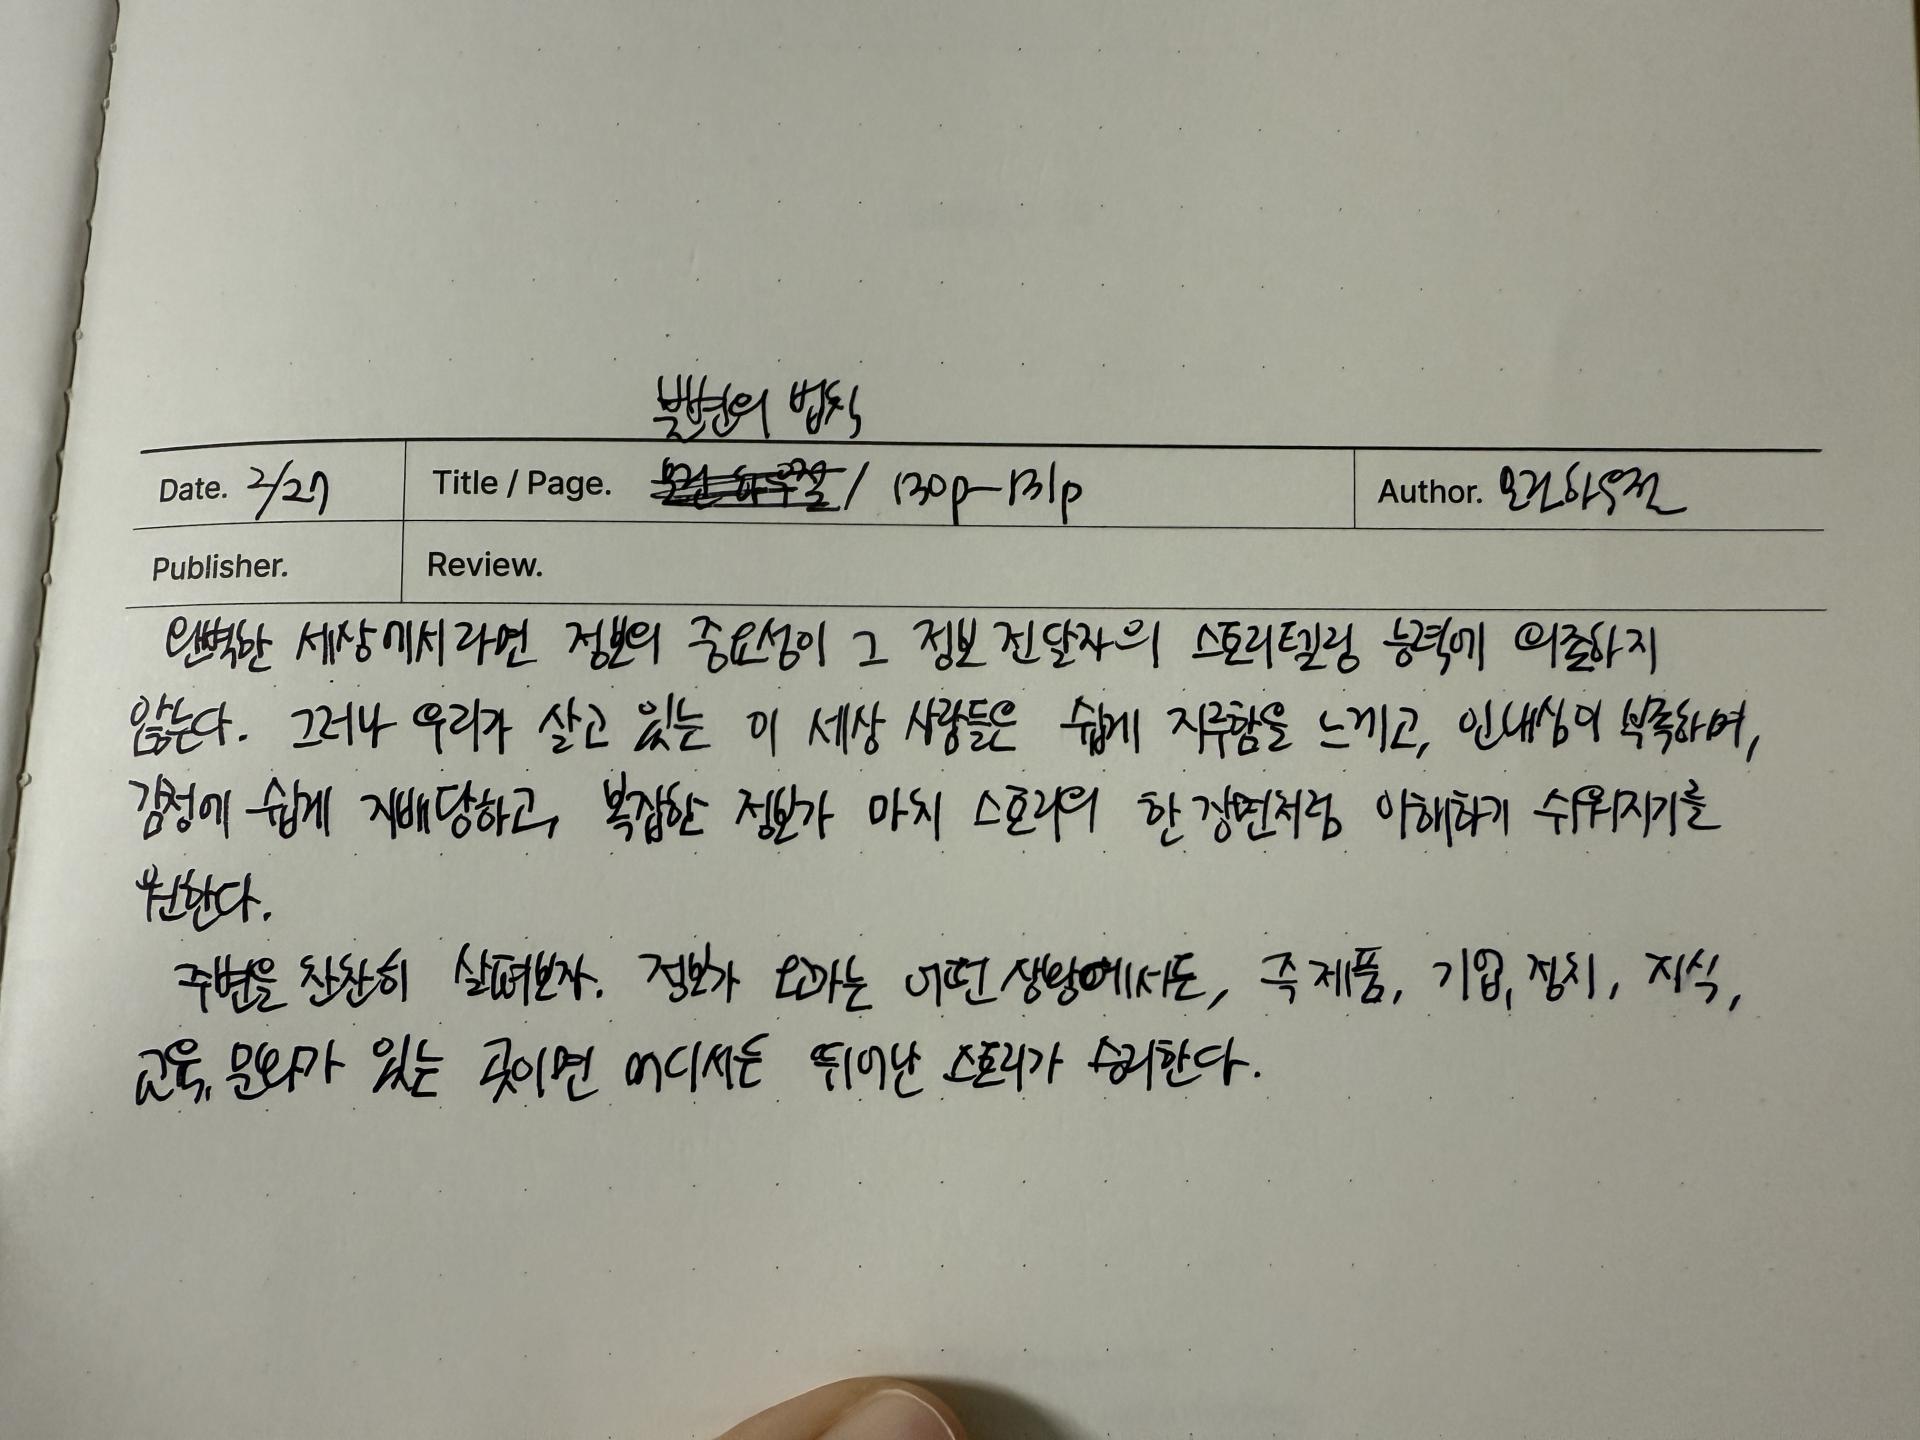 불변의 법칙
Date. 2/27 Title / Page. 모건 하우절 / 130p-131p Author. 모건하우절
Publisher. Review.
완벽한 세상에서라면 정보의 중요성이 그 정보 전달자의 스토리텔링 능력에 의존하지
않는다. 그러나 우리가 살고 있는 이 세상 사람들은 쉽게 지루함을 느끼고, 인내심이 부족하며,
감정에 쉽게 지배당하고, 복잡한 정보가 마치 스토리의 한 장면처럼 이해하기 쉬워지기를
원한다.
주변을 찬찬히 살펴보자. 정보가 오가는 어떤 상황에서든, 즉 제품, 기업, 정치, 지식,
교육, 문화가 있는 곳이면 어디서든 뛰어난 스토리가 승리한다.